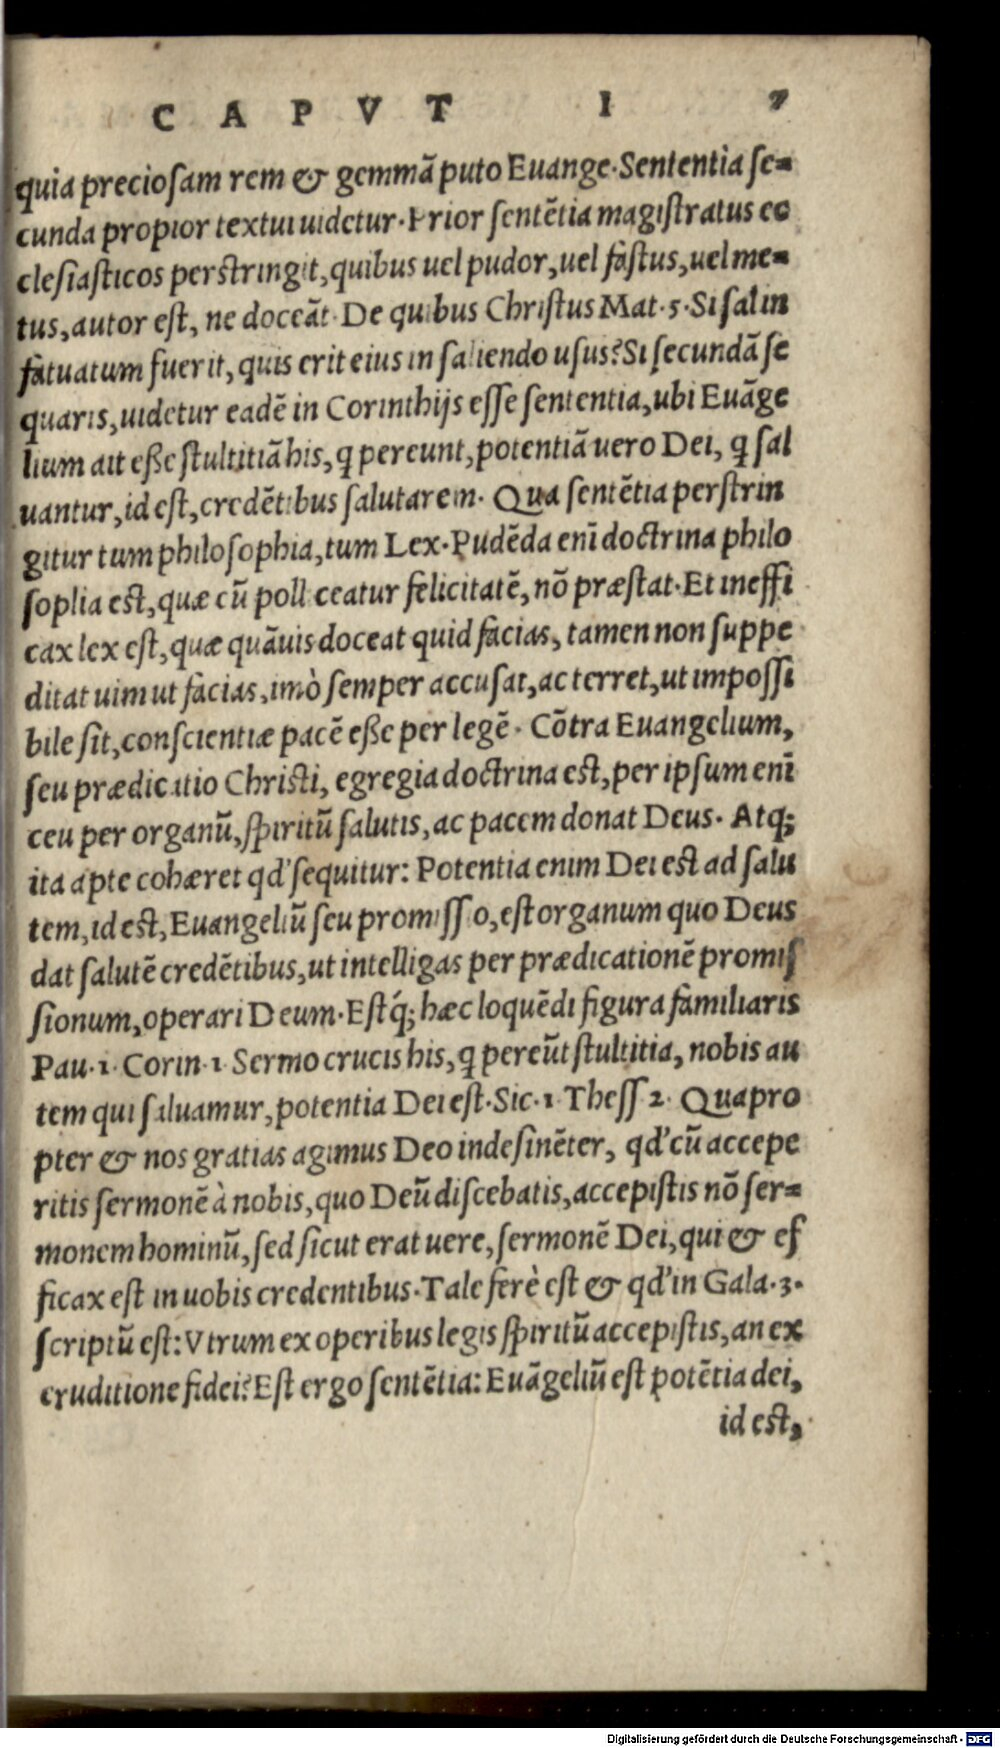 CAPVT I 7
quia preciosam rem & gemmā puto Euange. Sententia se=
cunda propior textui uidetur. Prior sentētia magistratus ec
clesiasticos perstringit, quibus uel pudor, uel fastus, uel me=
tus, autor est, ne doceāt. De quibus Christus Mat. 5. Si sal in
fatuatum fuerit, quis erit eius in saliendo usus? Si secundā se
quaris, uidetur eadē in Corinthijs esse sententia, ubi Euāge
lium ait eße stultitiā his, q pereunt, potentiā uero Dei, q sal
uantur, id est, credētibus salutarem. Qua sentētia perstrin
gitur tum philosophia, tum Lex. Pudēda enī doctrina philo
soplia est, quæ cū polliceatur felicitatē, nō præstat. Et ineffi
cax lex est, quæ quāuis doceat quid facias, tamen non suppe
ditat uim ut facias, imò semper accusat, ac terret, ut impossi
bile sit, conscientiæ pacē eße per legē. Cōtra Euangelium,
seu prædicatio Christi, egregia doctrina est, per ipsum enī
ceu per organū, spiritū salutis, ac pacem donat Deus. Atq;
ita apte cohæret qd' sequitur: Potentia enim Dei est ad salu
tem, id est, Euangeliū seu promissio, est organum quo Deus
dat salutē credētibus, ut intelligas per prædicationē promis
sionum, operari Deum. Estq́; hæc loquēdi figura familiaris
Pau. 1. Corin. 1. Sermo crucis his, q pereūt stultitia, nobis au
tem qui saluamur, potentia Dei est. Sic. 1 Thess 2. Quapro
pter & nos gratias agimus Deo indesinēter, qd' cū accepe
ritis sermonē à nobis, quo Deū discebatis, accepistis nō ser=
monem hominū, sed sicut erat uere, sermonē Dei, qui & ef
ficax est in uobis credentibus. Tale ferè est & qd' in Gala. 3.
scriptū est: Vtrum ex operibus legis spiritū accepistis, an ex
eruditione fidei? Est ergo sentētia: Euāgeliū est potētia dei,
id est,
Digitalisierung gefördert durch die Deutsche Forschungsgemeinschaft - DFG